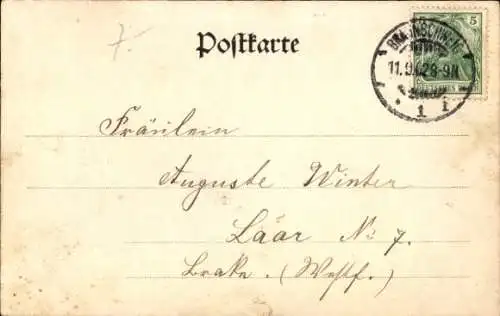 7.
Postkarte
5
BRAUNSCHWEIG
11.9.02 8-9N
1 i
Fräulein
Auguste Winter
Läär No 7.
Brake. (Westf.)